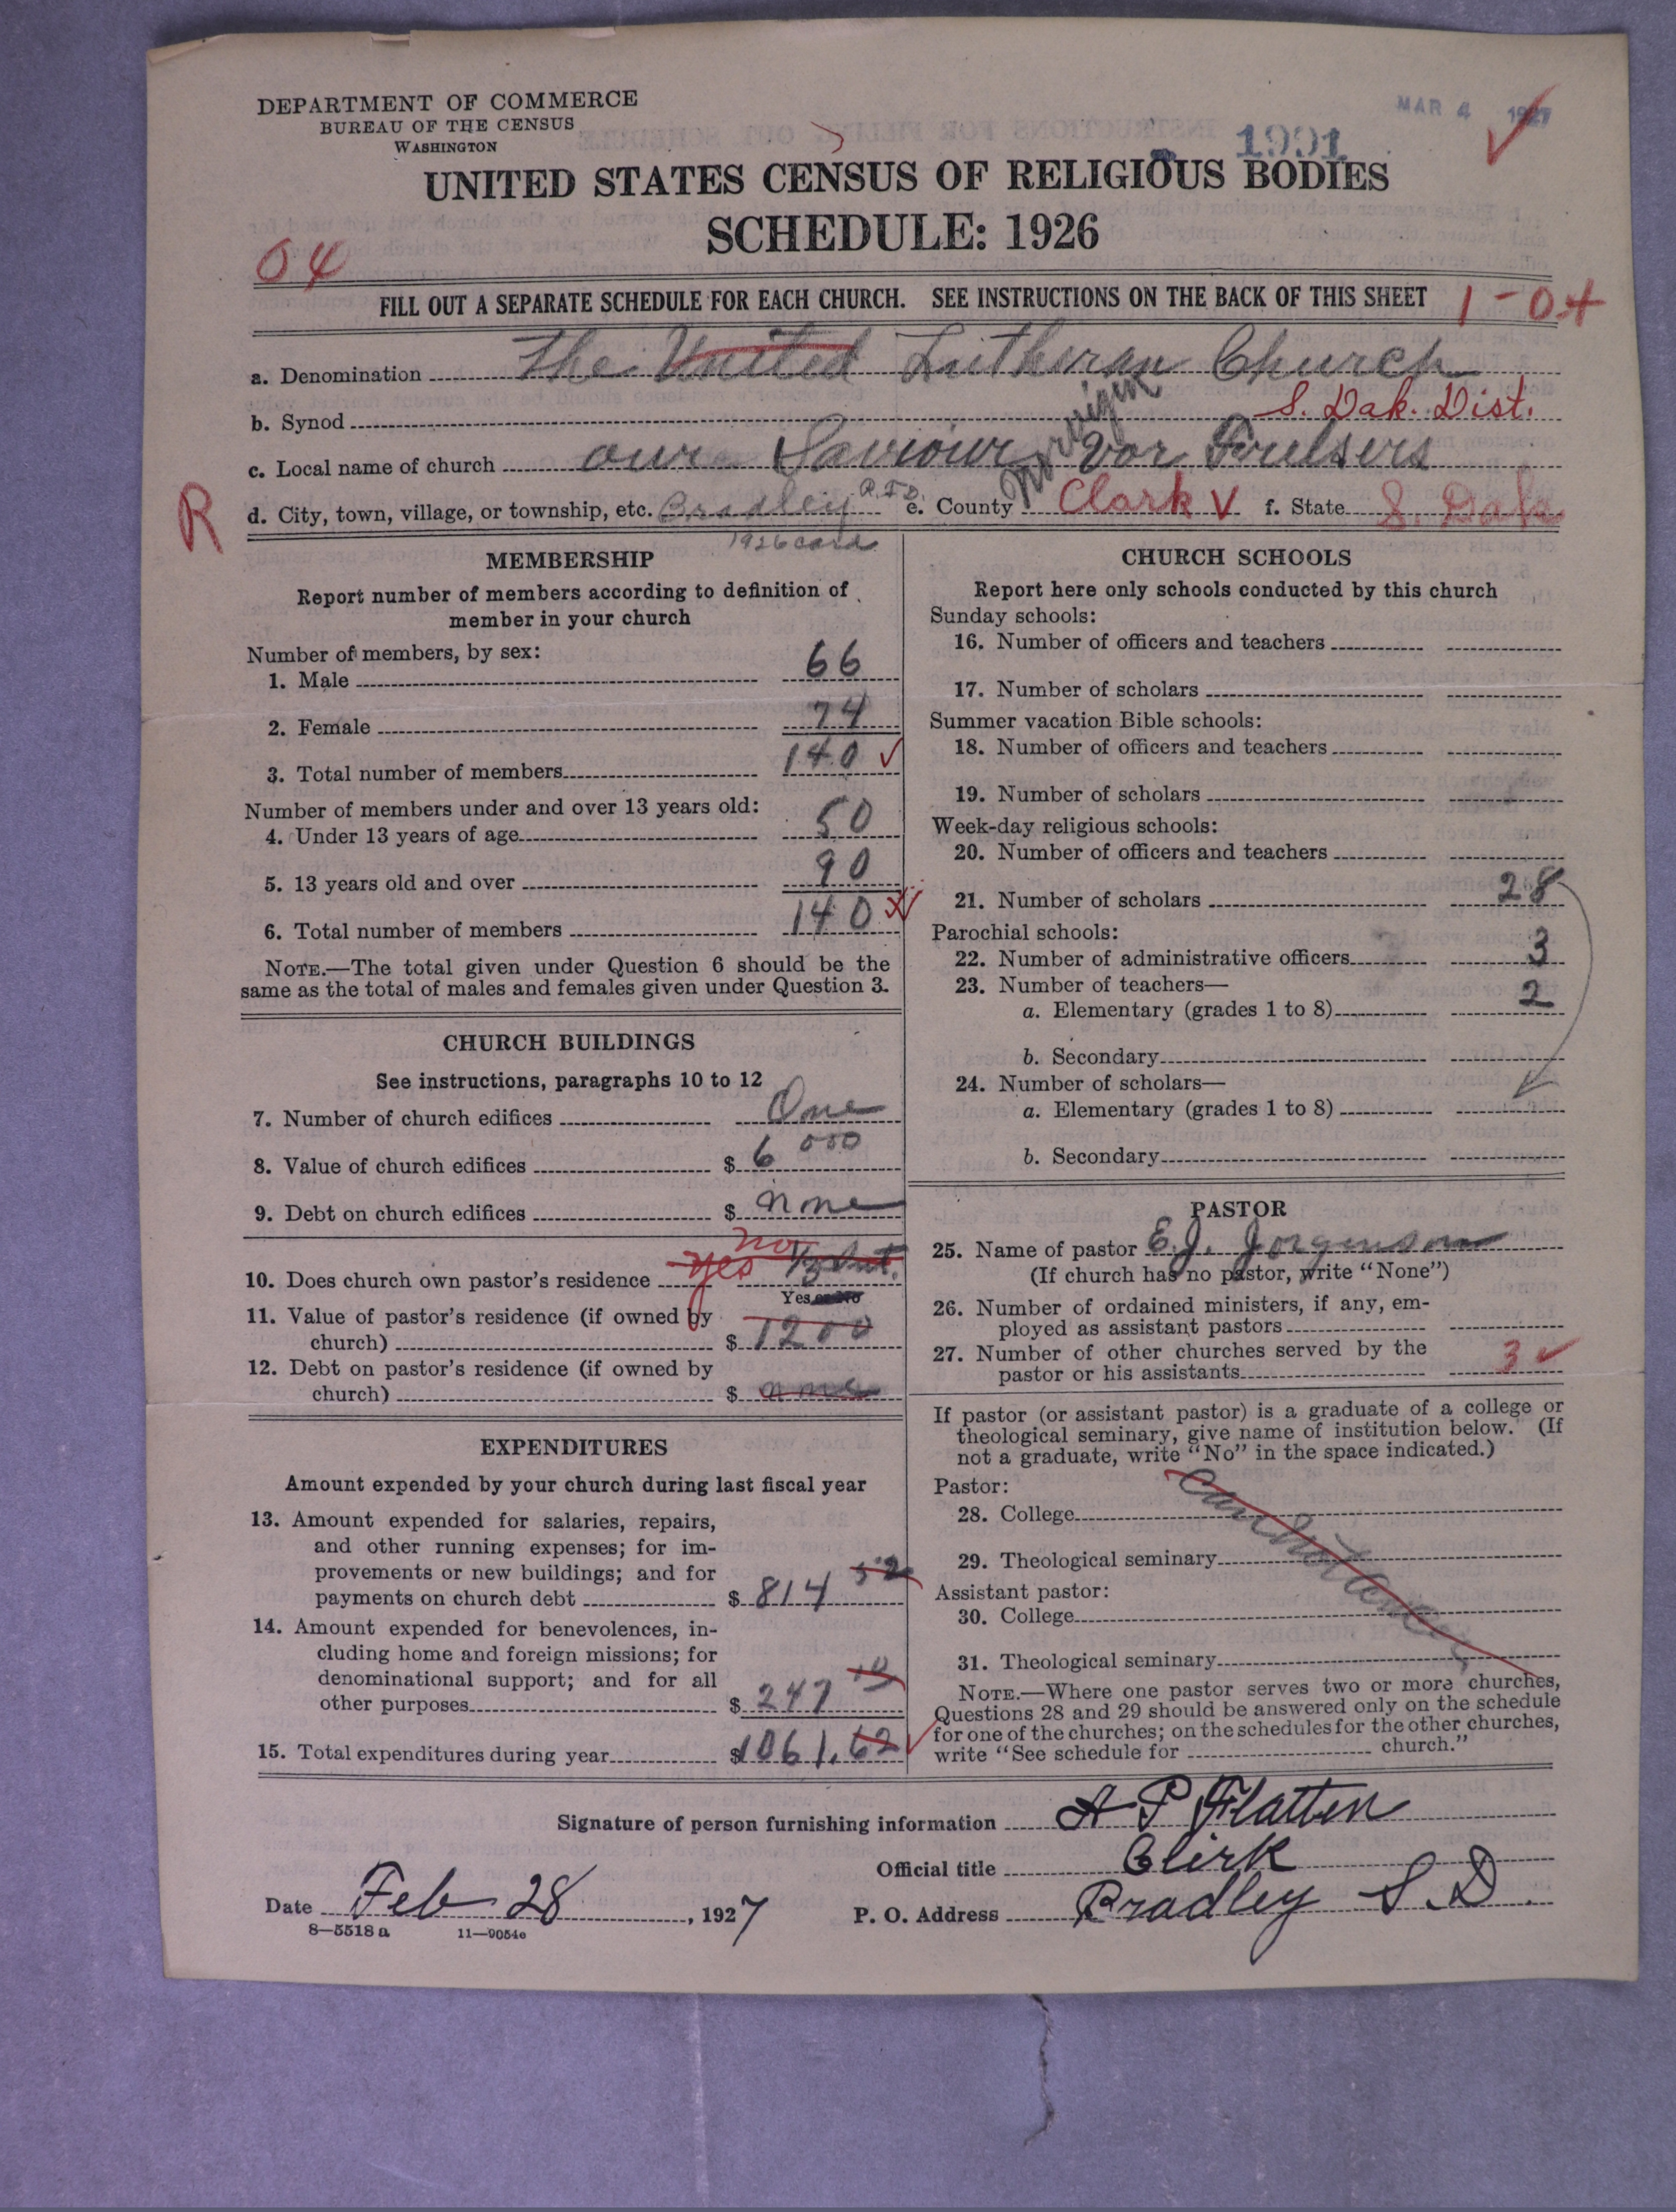 DEPARTMENT OF COMMERCE
BUREAU OF THE CENSUS
WASHINGTON
MAR 4 1927
1991
UNITED STATES CENSUS OF RELIGIOUS BODIES
SCHEDULE: 1926
04
FILL OUT A SEPARATE SCHEDULE FOR EACH CHURCH. SEE INSTRUCTIONS ON THE BACK OF THIS SHEET
1-04
a. Denomination The United Lutheran Church
b. Synod S. Dak. Dist.
Norwegian
c. Local name of church our Saviour Vor Frelsers
R
d. City, town, village, or township, etc. Bradley R.F.D. e. County Clark V f. State S. Dak
1926 card
MEMBERSHIP
Report number of members according to definition of
member in your church
Number of members, by sex:
1. Male 66
2. Female 74
3. Total number of members 140
Number of members under and over 13 years old:
4. Under 13 years of age 50
5. 13 years old and over 90
6. Total number of members 140
NOTE.—The total given under Question 6 should be the
same as the total of males and females given under Question 3.
CHURCH BUILDINGS
See instructions, paragraphs 10 to 12
7. Number of church edifices One
8. Value of church edifices $ 6 000
9. Debt on church edifices $ none
no
10. Does church own pastor's residence yes
Yes or No
11. Value of pastor's residence (if owned by
church) $ 1200
12. Debt on pastor's residence (if owned by
church) $ none
EXPENDITURES
Amount expended by your church during last fiscal year
13. Amount expended for salaries, repairs,
and other running expenses; for im-
provements or new buildings; and for
payments on church debt $ 814 52
14. Amount expended for benevolences, in-
cluding home and foreign missions; for
denominational support; and for all
other purposes $ 247 10
15. Total expenditures during year $1061.62
CHURCH SCHOOLS
Report here only schools conducted by this church
Sunday schools:
16. Number of officers and teachers
17. Number of scholars
Summer vacation Bible schools:
18. Number of officers and teachers
19. Number of scholars
Week-day religious schools:
20. Number of officers and teachers
21. Number of scholars 28
Parochial schools:
22. Number of administrative officers 3
23. Number of teachers—
a. Elementary (grades 1 to 8) 2
b. Secondary
24. Number of scholars—
a. Elementary (grades 1 to 8)
b. Secondary
PASTOR
25. Name of pastor E.J. Jorgenson
(If church has no pastor, write "None")
26. Number of ordained ministers, if any, em-
ployed as assistant pastors
27. Number of other churches served by the
pastor or his assistants 3
If pastor (or assistant pastor) is a graduate of a college or
theological seminary, give name of institution below. (If
not a graduate, write "No" in the space indicated.)
Pastor:
28. College
29. Theological seminary
Assistant pastor:
30. College
31. Theological seminary
NOTE.—Where one pastor serves two or more churches,
Questions 28 and 29 should be answered only on the schedule
for one of the churches; on the schedules for the other churches,
write "See schedule for church."
Signature of person furnishing information A P Flatten
Official title Clerk
Date Feb 28, 1927 P. O. Address Bradley S.D.
8—5518 a 11—9054c